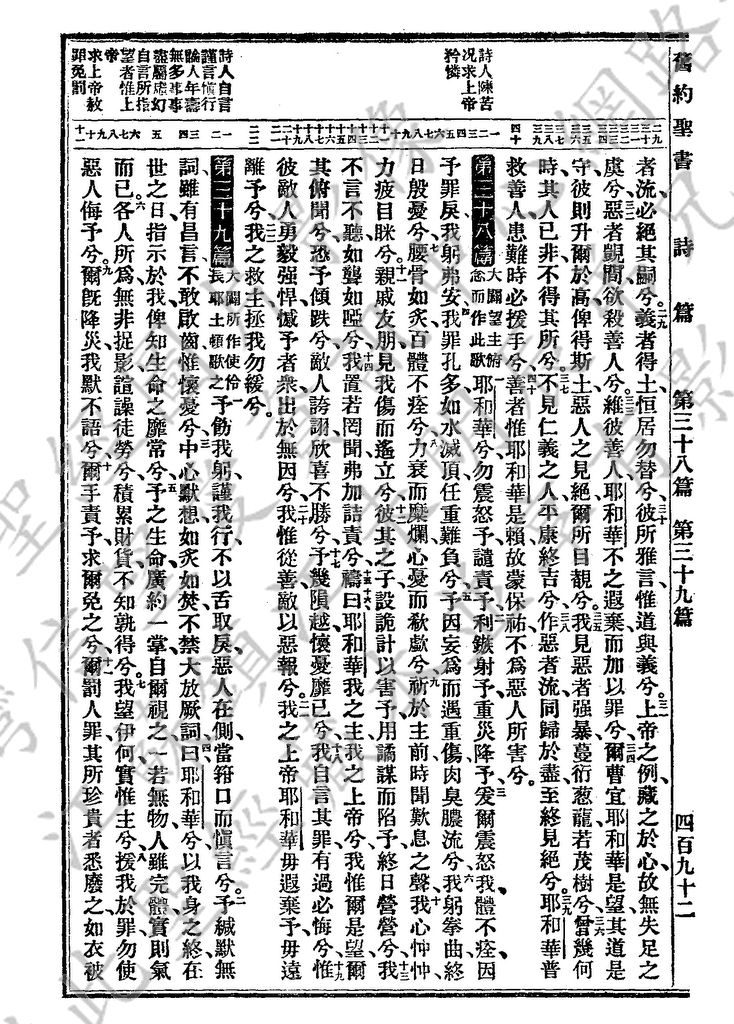 舊約聖書 詩篇 第三十八篇 第三十九篇 四百九十二
詩人陳苦
况求上帝
矜憐
詩人自言
謹言慎行
論人年壽
無多事事
盡屬虛幻
自言所指
望者惟上
帝
求上帝赦
罪免罰
者流必絕其嗣兮、二九義者得土恒居勿替兮、三十彼所雅言惟道與義兮、三一上帝之例藏之於心故無失足之
虞兮、三二惡者覬間欲殺善人兮、三三維彼善人耶和華不之遐棄而加以罪兮、三四爾曹宜耶和華是望其道是
守彼則升爾於高俾得斯土惡人之見絕爾所目覩兮、三五我見惡者强暴蔓衍葱蘢若茂樹兮、三六曾幾何
時其人已非不得其所兮、三七不見仁義之人平康終吉兮、三八作惡者流同歸於盡至終見絕兮、三九耶和華普
救善人患難時必援手兮、四十善者惟耶和華是賴故蒙保祐不爲惡人所害兮。
第三十八篇 大闢望主俯念而作此歌 一耶和華兮勿震怒予譴責予二利鏃射予重災降予三爰爾震怒我體不痊因
予罪戾我躬弗安四我罪孔多如水滅頂任重難負兮五予因妄爲而遇重傷肉臭膿流兮六我躬拳曲終
日殷憂兮七腰骨如炙百體不痊兮八力衰而糜爛心憂而欷歔兮九祈於主前時聞歎息之聲十我心忡忡
力疲目眯兮十一親戚友朋見我傷而遙立兮十二彼其之子設詭計以害予用譎謀而陷予終日營營兮十三我
不言不聽如聾如啞兮十四我置若罔聞弗加詰責兮十五十六禱曰耶和華我之主我之上帝兮我惟爾是望爾
其俯聞兮恐予傾跌兮敵人誇詡欣喜不勝兮十七予幾隕越懷憂靡已兮十八我自言其罪有過必悔兮十九惟
彼敵人勇毅强悍憾予者衆出於無因兮二十我惟從善敵以惡報兮二一我之上帝耶和華毋遐棄予毋遠
離予兮二二我之救主拯我勿緩兮。
第三十九篇 大闢所作使伶長耶土頓歌之 一予飭我躬謹我行不以舌取戾惡人在側當箝口而愼言兮二予緘默無
詞雖有昌言不敢啟齒惟懷憂兮三中心默想如炙如焚不禁大放厥詞曰四耶和華兮以我身之終在
世之日指示於我俾知生命之靡常兮五予之生命廣約一掌自爾視之一若無物人雖完體實則氣
而已六各人所爲無非捉影諠譟徒勞兮積累財貨不知孰得兮七我望伊何實惟主兮八援我於罪勿使
惡人侮予兮九爾旣降災我默不語兮十爾手責予求爾免之兮十一爾罰人罪其所珍貴者悉廢之如衣被